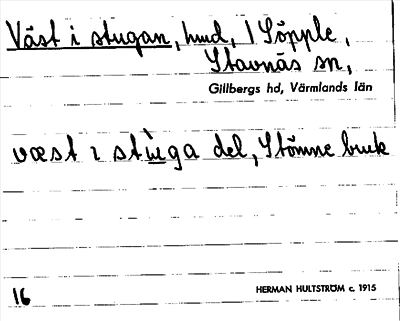 Väst i stugan, hmd, 1 Söpple,
Stavnäs sn,
Gillbergs hd, Värmlands län
væst ı stùga del, Stömne bruk
16
HERMAN HULTSTRÖM c. 1915